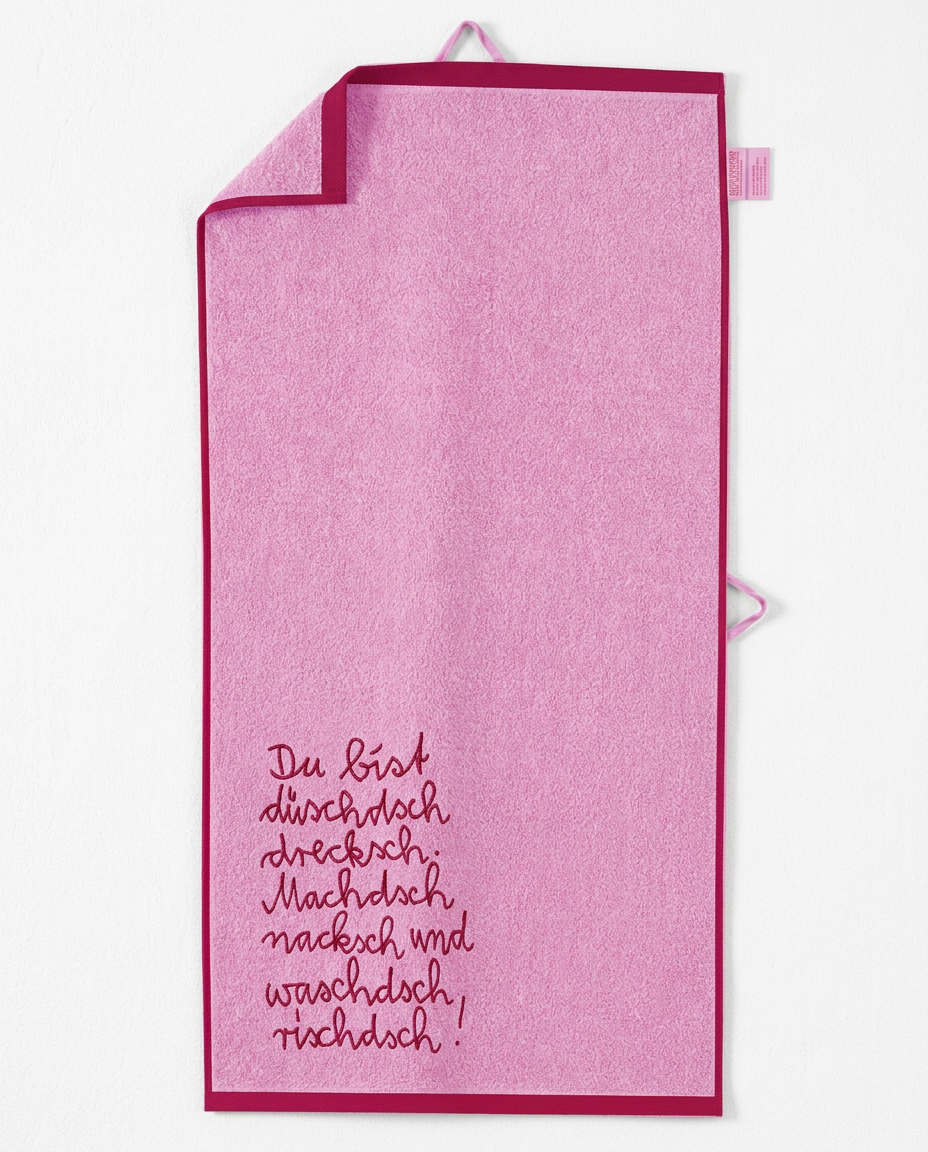 Du bist
düschdsch
drecksch.
Machdsch
nacksch und
waschdsch
rischdsch!